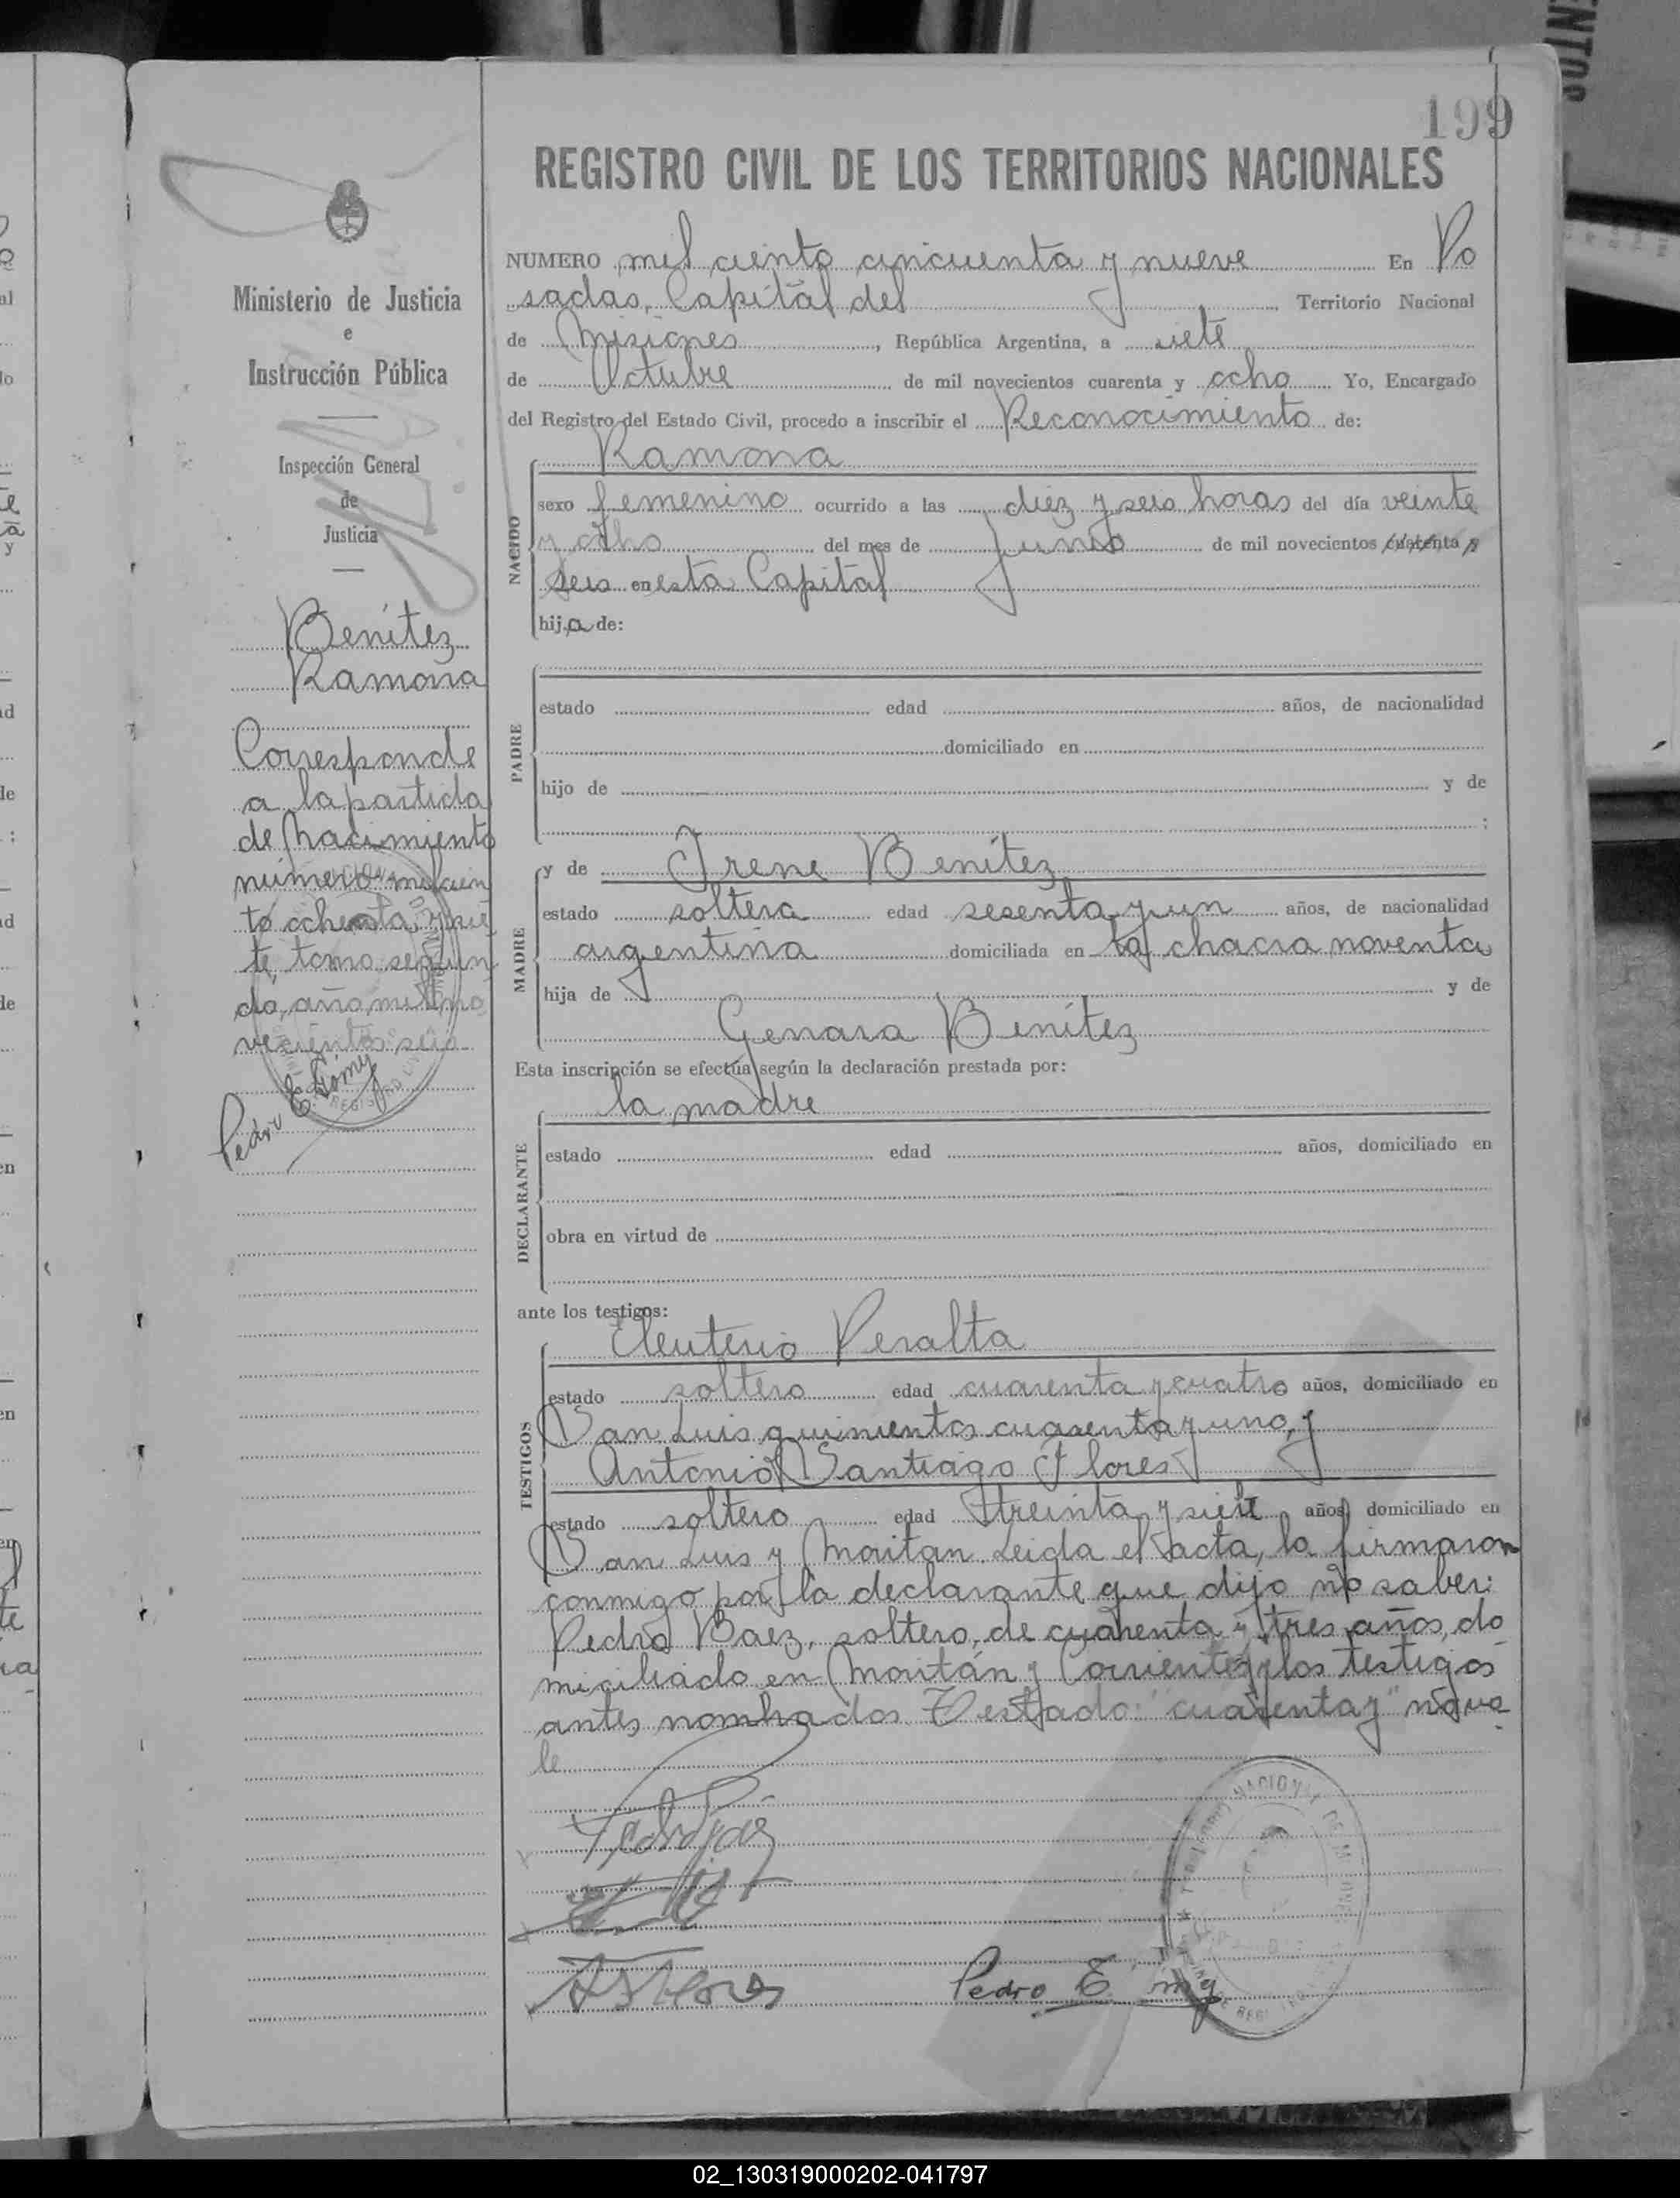 199
REGISTRO CIVIL DE LOS TERRITORIOS NACIONALES
Ministerio de Justicia
e
Instrucción Pública
Inspección General
de
Justicia
Benítez
Ramona
Corresponde
a la partida
de Nacimiento
número mil cien
to ochenta y sie
te, tomo segun
do, año mil no
vecientos seis
Pedro E.
NUMERO mil ciento cincuenta y nueve En Po
sadas, Capital del Territorio Nacional
de Misiones, República Argentina, a siete
de Octubre de mil novecientos cuarenta y ocho Yo, Encargado
del Registro del Estado Civil, procedo a inscribir el Reconocimiento de:
Ramona
NACIDO
sexo femenino ocurrido a las diez y seis horas del día veinte
y ocho del mes de Junio de mil novecientos cuarenta y
seis en esta Capital
hija de:
PADRE
estado edad años, de nacionalidad
domiciliado en
hijo de y de
:
MADRE
y de Irene Benítez
estado soltera edad sesenta y un años, de nacionalidad
argentina domiciliada en la chacra noventa
hija de y de
Genara Benítez
Esta inscripción se efectúa según la declaración prestada por:
la madre
DECLARANTE
estado edad años, domiciliado en
obra en virtud de
ante los testigos:
Eleuterio Peralta
TESTIGOS
estado soltero edad cuarenta y cuatro años, domiciliado en
San Luis quinientos cuarenta y uno, y
Antonio Santiago Flores
estado soltero edad treinta y siete años, domiciliado en
San Luis y Moritan Leida el acta, la firmaron
conmigo por la declarante que dijo no saber:
Pedro Baez, soltero, de cuarenta y tres años, do
miciliado en Moritán y Corrientes y los testigos
antes nombrados Testado: "cuarenta y" no va
le
ASFlores
Pedro E.
02_130319000202-041797